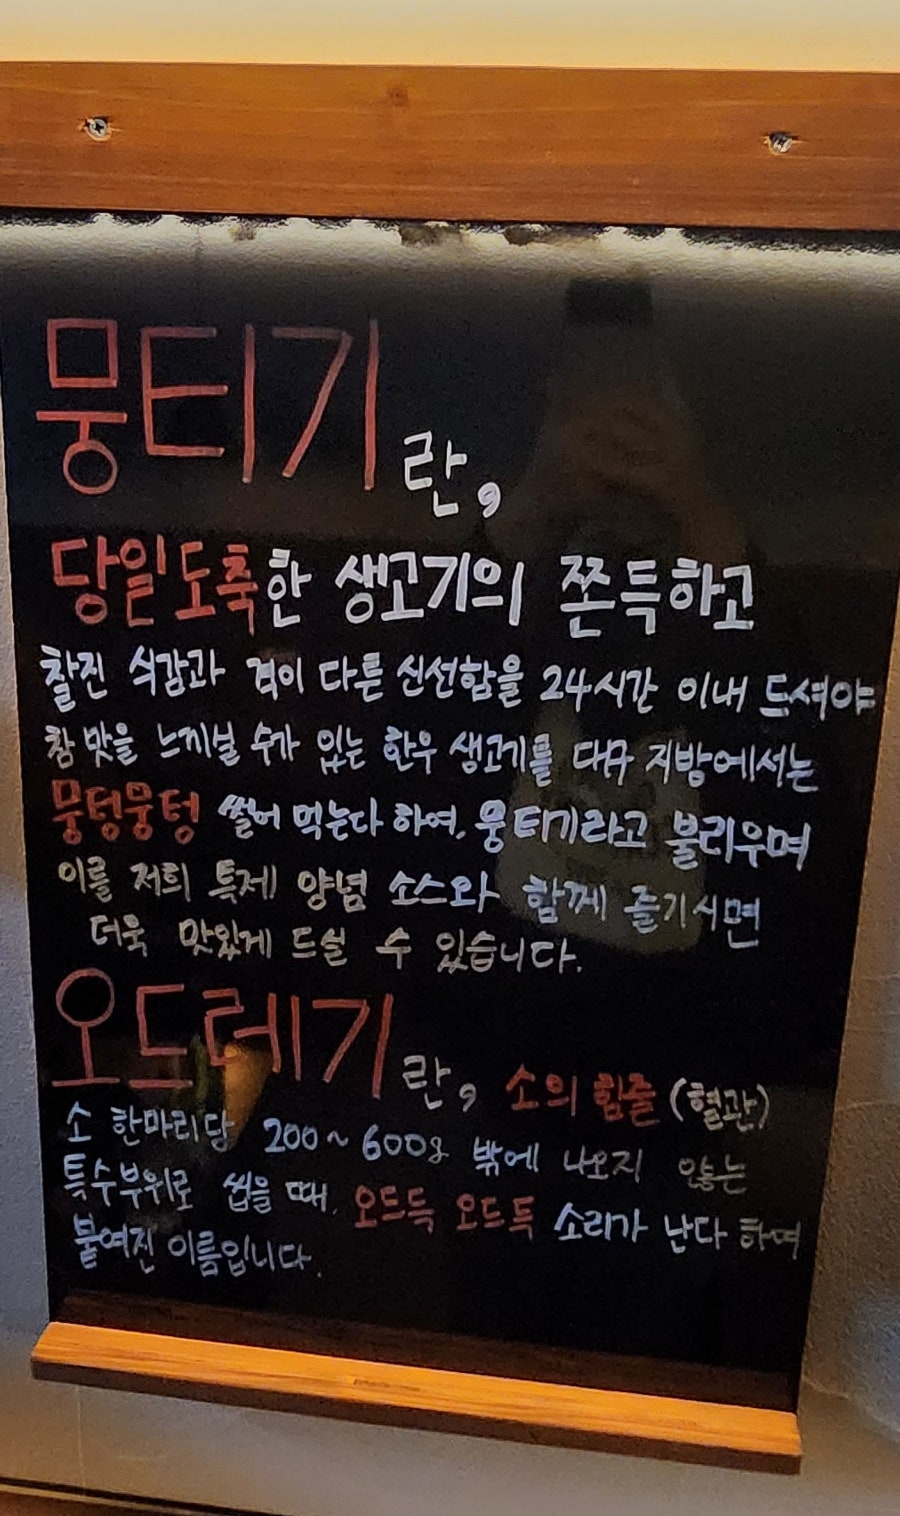 뭉티기란,
당일도축한 생고기의 쫀득하고
찰진 식감과 격이 다른 신선함을 24시간 이내 드셔야
참 맛을 느끼실 수가 있는 한우 생고기를 대구 지방에서는
뭉텅뭉텅 썰어 먹는다 하여, 뭉티기라고 불리우며
이를 저희 특제 양념 소스와 함께 즐기시면
더욱 맛있게 드실 수 있습니다.
오드레기란, 소의 힘줄 (혈관)
소 한마리당 200~600g 밖에 나오지 않는
특수부위로 씹을 때, 오드득 오드득 소리가 난다 하여
붙여진 이름입니다.